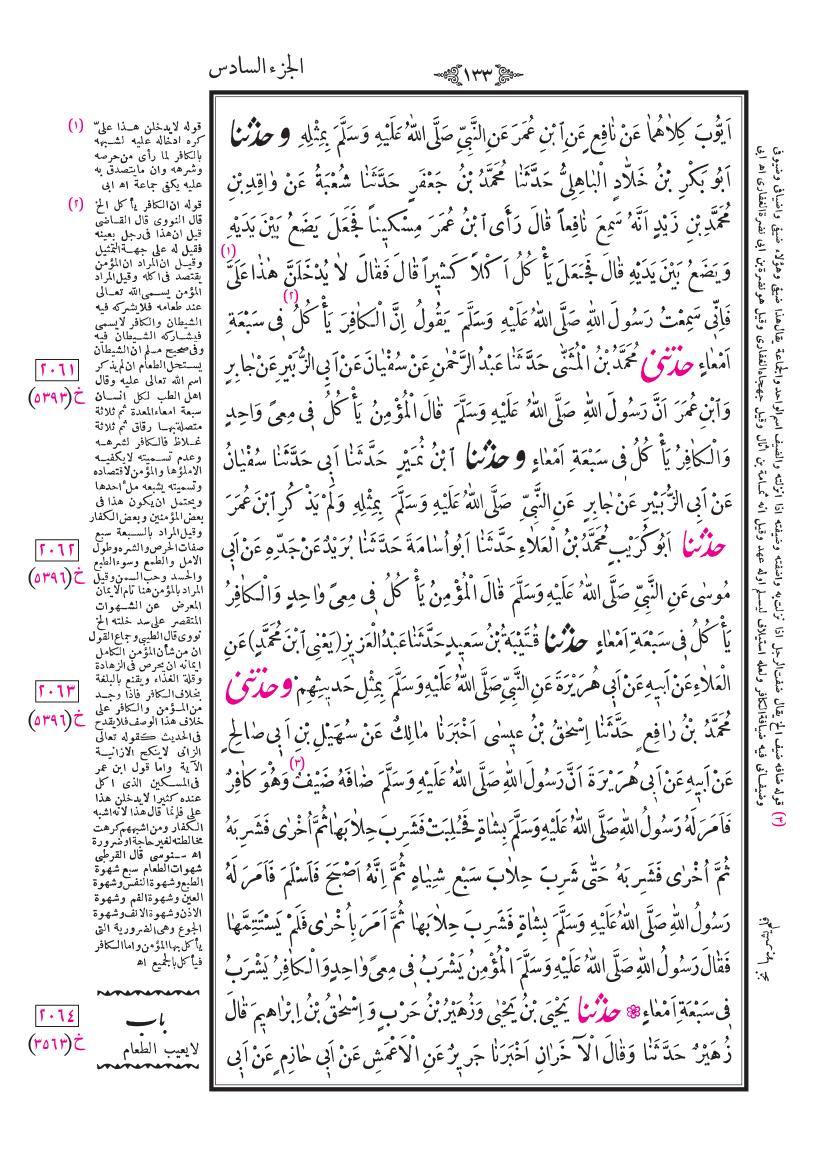 الجزء السادس
١٣٣
اَيُّوبَ كِلَاهُمَا عَنْ نَافِعٍ عَنِ ابْنِ عُمَرَ عَنِ النَّبِيِّ صَلَّى اللهُ عَلَيْهِ وَسَلَّمَ بِمِثْلِهِ وحدثنا
اَبُو بَكْرِ بْنُ خَلَّادٍ الْبَاهِلِيُّ حَدَّثَنَا مُحَمَّدُ بْنُ جَعْفَرٍ حَدَّثَنَا شُعْبَةُ عَنْ وَاقِدِ بْنِ
مُحَمَّدِ بْنِ زَيْدٍ اَنَّهُ سَمِعَ نَافِعاً قَالَ رَأَى ابْنُ عُمَرَ مِسْكِيناً فَجَعَلَ يَضَعُ بَيْنَ يَدَيْهِ
وَيَضَعُ بَيْنَ يَدَيْهِ قَالَ فَجَعَلَ يَأْكُلُ اَكْلاً كَثِيراً قَالَ فَقَالَ لَا يُدْخَلَنَّ هٰذَا عَلَيَّ (١)
فَاِنِّي سَمِعْتُ رَسُولَ اللهِ صَلَّى اللهُ عَلَيْهِ وَسَلَّمَ يَقُولُ اِنَّ الْكَافِرَ يَأْكُلُ (٢) فِي سَبْعَةِ
اَمْعَاءٍ حدثنى مُحَمَّدُ بْنُ الْمُثَنَّى حَدَّثَنَا عَبْدُ الرَّحْمٰنِ عَنْ سُفْيَانَ عَنْ اَبِي الزُّبَيْرِ عَنْ جَابِرٍ
وَابْنِ عُمَرَ اَنَّ رَسُولَ اللهِ صَلَّى اللهُ عَلَيْهِ وَسَلَّمَ قَالَ الْمُؤْمِنُ يَأْكُلُ فِي مِعًى وَاحِدٍ
وَالْكَافِرُ يَأْكُلُ فِي سَبْعَةِ اَمْعَاءٍ وحدثنا ابْنُ نُمَيْرٍ حَدَّثَنَا اَبِي حَدَّثَنَا سُفْيَانُ
عَنْ اَبِي الزُّبَيْرِ عَنْ جَابِرٍ عَنِ النَّبِيِّ صَلَّى اللهُ عَلَيْهِ وَسَلَّمَ بِمِثْلِهِ وَلَمْ يَذْكُرِ ابْنَ عُمَرَ
حدثنا اَبُو كُرَيْبٍ مُحَمَّدُ بْنُ الْعَلَاءِ حَدَّثَنَا اَبُو اُسَامَةَ حَدَّثَنَا بُرَيْدٌ عَنْ جَدِّهِ عَنْ اَبِي
مُوسَى عَنِ النَّبِيِّ صَلَّى اللهُ عَلَيْهِ وَسَلَّمَ قَالَ الْمُؤْمِنُ يَأْكُلُ فِي مِعًى وَاحِدٍ وَالْكَافِرُ
يَأْكُلُ فِي سَبْعَةِ اَمْعَاءٍ حدثنا قُتَيْبَةُ بْنُ سَعِيدٍ حَدَّثَنَا عَبْدُ الْعَزِيزِ (يَعْنِي ابْنَ مُحَمَّدٍ) عَنِ
الْعَلَاءِ عَنْ اَبِيهِ عَنْ اَبِي هُرَيْرَةَ عَنِ النَّبِيِّ صَلَّى اللهُ عَلَيْهِ وَسَلَّمَ بِمِثْلِ حَدِيثِهِمْ وحدثنى
مُحَمَّدُ بْنُ رَافِعٍ حَدَّثَنَا اِسْحٰقُ بْنُ عِيسَى اَخْبَرَنَا مَالِكٌ عَنْ سُهَيْلِ بْنِ اَبِي صَالِحٍ
عَنْ اَبِيهِ عَنْ اَبِي هُرَيْرَةَ اَنَّ رَسُولَ اللهِ صَلَّى اللهُ عَلَيْهِ وَسَلَّمَ ضَافَهُ ضَيْفٌ (٣) وَهُوَ كَافِرٌ
فَاَمَرَ لَهُ رَسُولُ اللهِ صَلَّى اللهُ عَلَيْهِ وَسَلَّمَ بِشَاةٍ فَحُلِبَتْ فَشَرِبَ حِلَابَهَا ثُمَّ اُخْرَى فَشَرِبَهُ
ثُمَّ اُخْرَى فَشَرِبَهُ حَتَّى شَرِبَ حِلَابَ سَبْعِ شِيَاهٍ ثُمَّ اِنَّهُ اَصْبَحَ فَاَسْلَمَ فَاَمَرَ لَهُ
رَسُولُ اللهِ صَلَّى اللهُ عَلَيْهِ وَسَلَّمَ بِشَاةٍ فَشَرِبَ حِلَابَهَا ثُمَّ اَمَرَ بِاُخْرَى فَلَمْ يَسْتَتِمَّهَا
فَقَالَ رَسُولُ اللهِ صَلَّى اللهُ عَلَيْهِ وَسَلَّمَ الْمُؤْمِنُ يَشْرَبُ فِي مِعًى وَاحِدٍ وَالْكَافِرُ يَشْرَبُ
فِي سَبْعَةِ اَمْعَاءٍ حدثنا يَحْيَى بْنُ يَحْيَى وَزُهَيْرُ بْنُ حَرْبٍ وَاِسْحٰقُ بْنُ اِبْرَاهِيمَ قَالَ
زُهَيْرٌ حَدَّثَنَا وَقَالَ الْآخَرَانِ اَخْبَرَنَا جَرِيرٌ عَنِ الْاَعْمَشِ عَنْ اَبِي حَازِمٍ عَنْ اَبِي
(١) قوله لا يدخلن هذا علىّ
كره ادخاله عليه لشبهه
بالكافر لما رأى من حرصه
وشرهه وان ما يتصدق به
عليه يكفى جماعة اه ابى
(٢) قوله ان الكافر يأكل الخ
قال النووى قال القاضى
قيل ان هذا فى رجل بعينه
فقيل له على جهة التمثيل
وقيل ان المراد ان المؤمن
يقتصد فى اكله وقيل المراد
المؤمن يسمى الله تعالى
عند طعامه فلا يشركه فيه
الشيطان والكافر لا يسمى
فيشاركه الشيطان فيه
وفى صحيح مسلم ان الشيطان
يستحل الطعام ان لم يذكر
اسم الله تعالى عليه وقال
اهل الطب لكل انسان
سبعة امعاء المعدة ثم ثلاثة
متصلة بها رقاق ثم ثلاثة
غلاظ فالكافر لشرهه
وعدم تسميته لا يكفيه
الا ملؤها والمؤمن لاقتصاده
وتسميته يشبعه ملء احدها
ويحتمل ان يكون هذا فى
بعض المؤمنين وبعض الكفار
وقيل المراد بالسبعة سبع
صفات الحرص والشره وطول
الامل والطمع وسوء الطبع
والحسد وحب السمن وقيل
المراد بالمؤمن هنا تام الايمان
المعرض عن الشهوات
المقتصر على سد خلته الخ
نووى قال الطيبى وجماع القول
ان من شأن المؤمن الكامل
ايمانه ان يحرص فى الزهادة
وقلة الغذاء ويقنع بالبلغة
بخلاف الكافر فاذا وجد
من المؤمن والكافر على
خلاف هذا الوصف فلا يقدح
فى الحديث كقوله تعالى
الزانى لا ينكح الا زانية
الآية واما قول ابن عمر
فى المسكين الذى اكل
عنده كثيرا لا يدخلن هذا
على فانما قال هذا لانه اشبه
الكفار ومن اشبههم كرهت
مخالطته لغير حاجة او ضرورة
اه سنوسى قال القرطبى
شهوات الطعام سبع شهوة
الطبع وشهوة النفس وشهوة
العين وشهوة الفم وشهوة
الاذن وشهوة الانف وشهوة
الجوع وهى الضرورية التى
يأكل بها المؤمن واما الكافر
فيأكل بالجميع اه
باب
لا يعيب الطعام
٢٠٦١
خ (٥٣٩٣)
٢٠٦٢
خ (٥٣٩٦)
٢٠٦٣
خ (٥٣٩٦)
٢٠٦٤
خ (٣٥٦٣)
(٣) قوله ضافه ضيف الخ يقال ضفت الرجل اذا نزلت به واضفته وضيفته اذا انزلته والضيف اسم للواحد والجماعة يقال هذا ضيف وهؤلاء ضيف واضياف وضيوف
وضيفان فيه ضيافة الكافر ولعله استيلاف ليسلم اوله عهد وقيل انه ثمامة بن اثال وقيل جهجاه الغفارى وقيل هو نضرة بن ابى نضرة الغفارى اه ابى